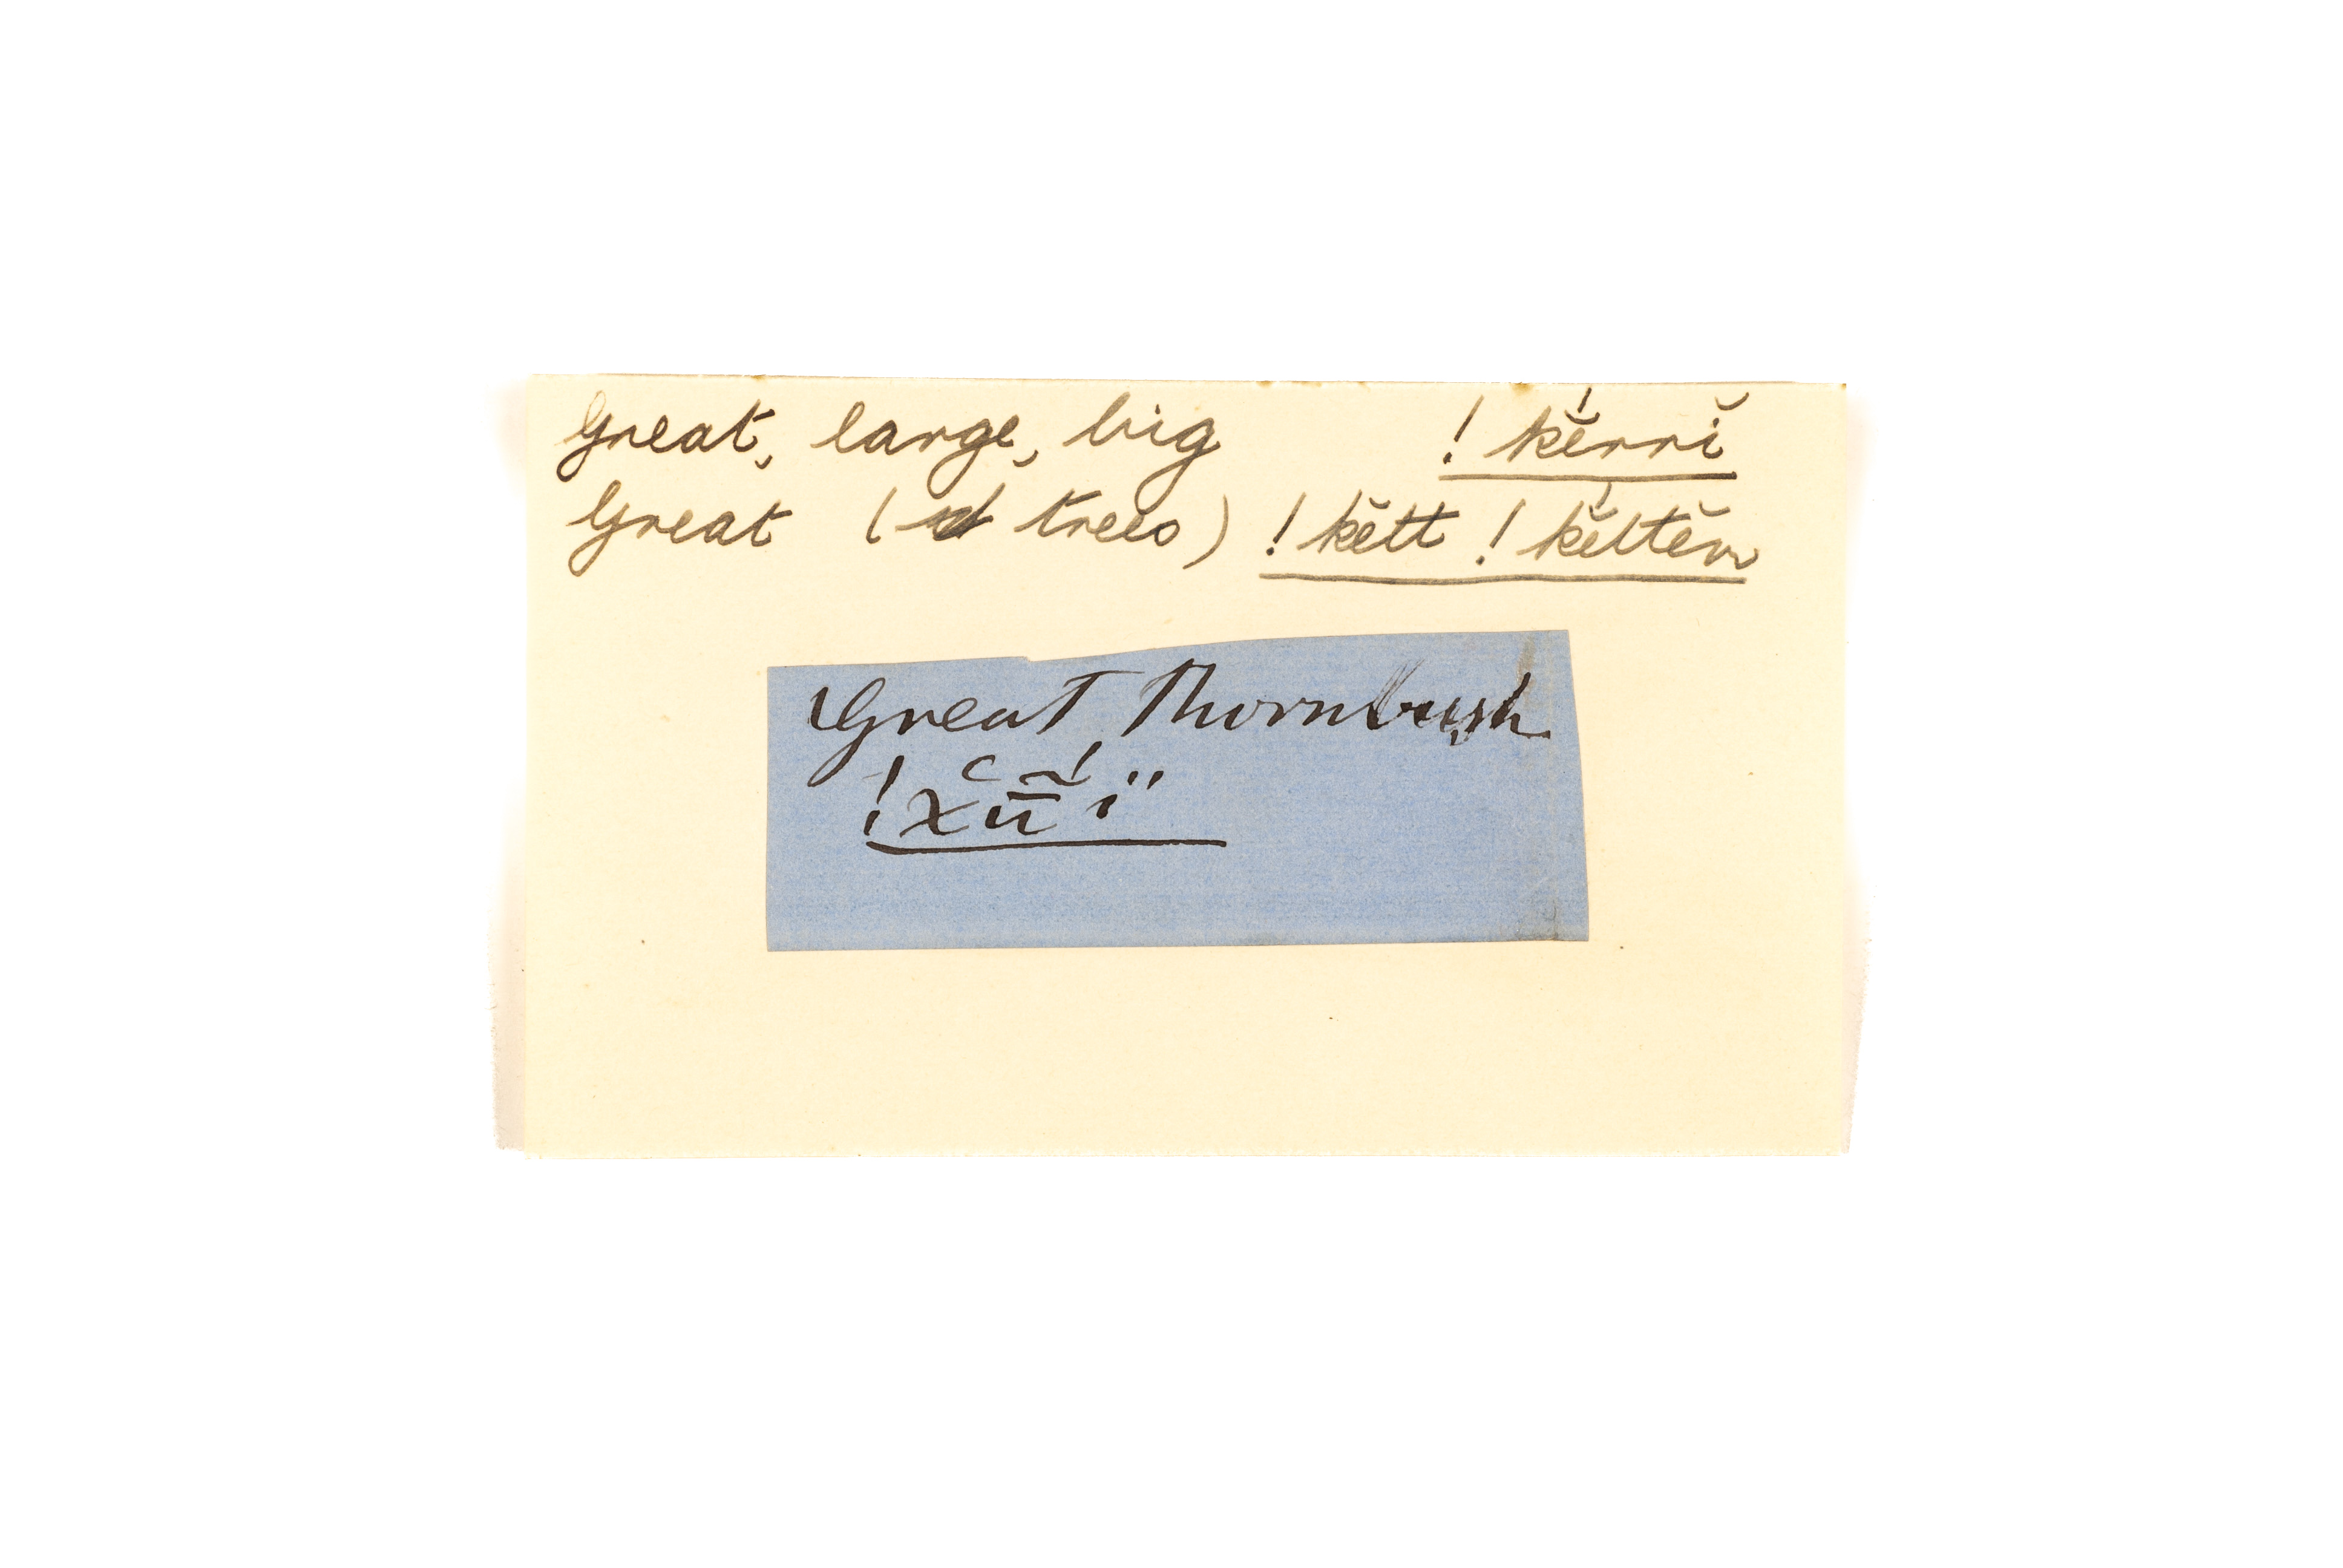 Great, large, big !kĕ́rrĭ
Great (of trees) !kĕtt !kĕ́ttĕn
Great Thornbush
!χũ̄́ï